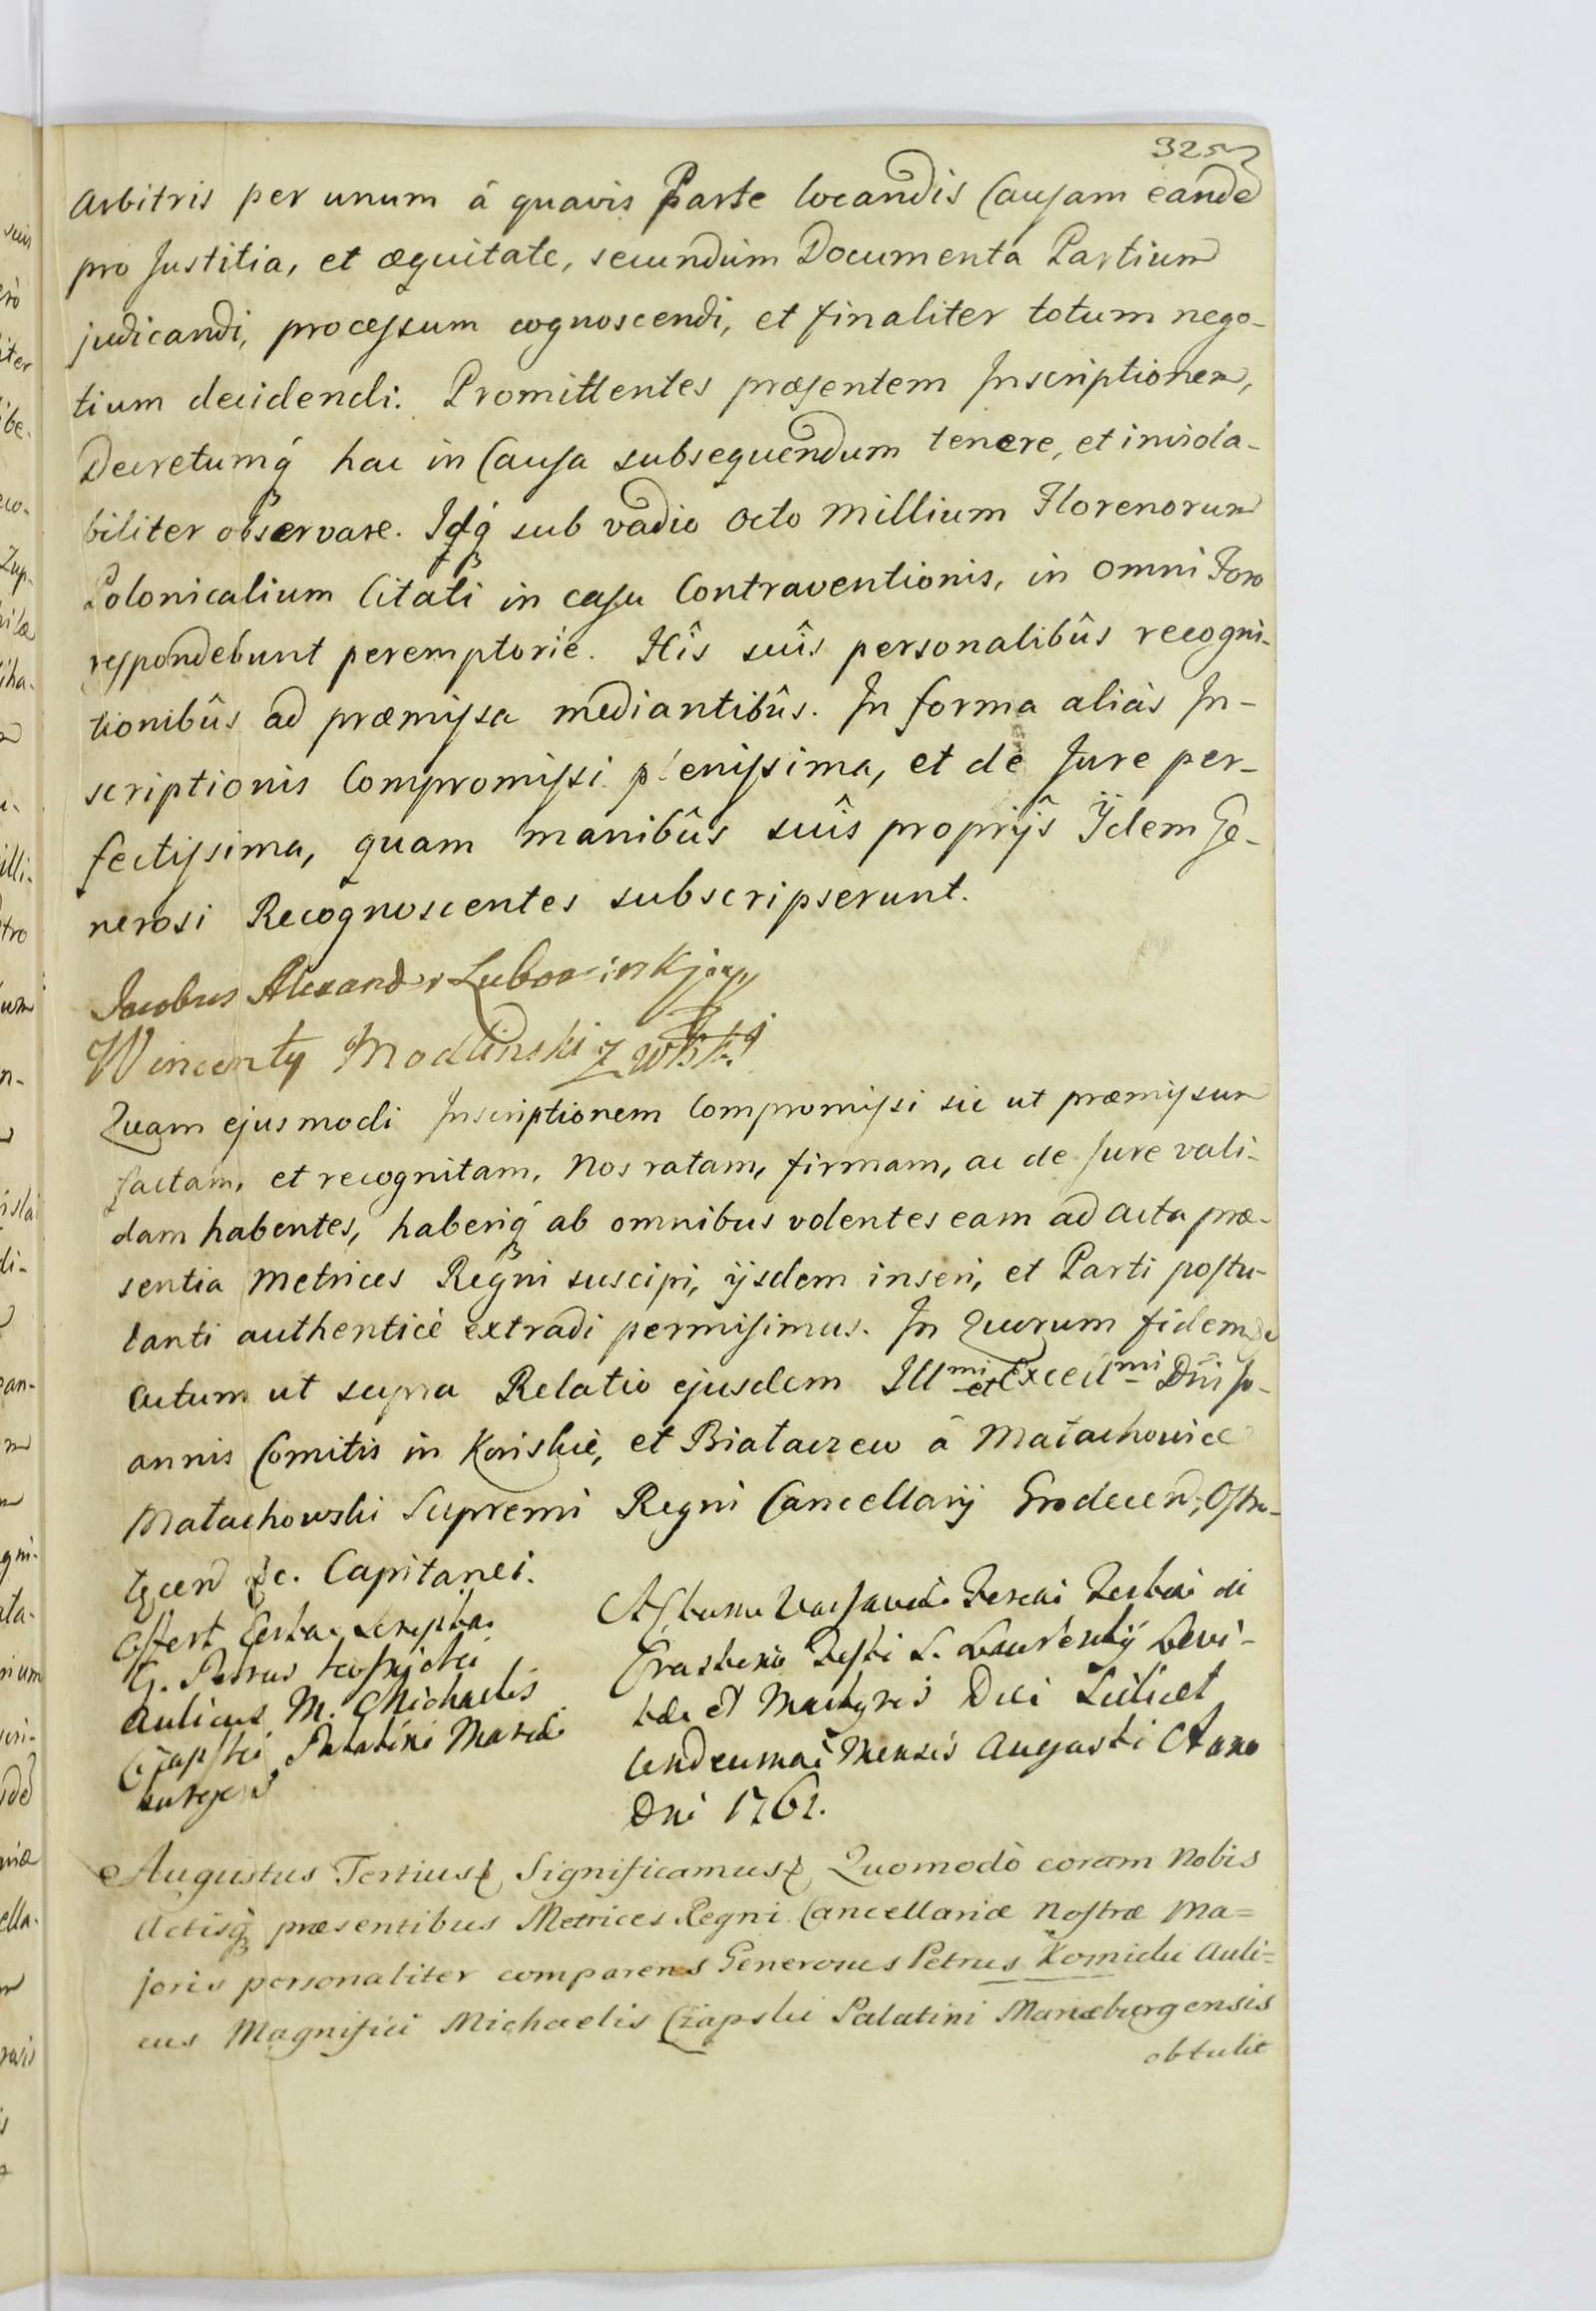 325
Arbitris per unum â quavis Parte locandis Causam eande
pro Justitia, et æquitate, secundùm Documenta Partium
judicandi, processum cognoscendi, et finaliter totum nego-
tium decidendi. Promittentes præsentem Inscriptionem,
Decretumq́ hac in Causa subsequendum tenere, et inviola-
biliter observare. Idq́ sub vadio Octo Millium Florenorum
Polonicalium Citati in casu Contraventionis, in omni Foro
respondebunt peremptoriè. Hîs suîs personalibûs recogni-
tionibûs ad præmissa mediantibûs. In forma aliàs In-
scriptionis Compromissi plenissima, et de Jure per-
fectissima, quam manibûs suîs proprijs Ijdem Ge-
nerosi Recognoscentes subscripserunt.
Jacobus Alexander
Wincenty Modlinski
Quam ejusmodi Inscriptionem Compromissi sic ut præmissum
factam, et recognitam, Nos ratam, firmam, ac de Jure vali-
dam habentes, haberiq́ ab omnibus volentes eam ad Acta præ-
sentia Metrices Regni suscipi, ijsdem inseri, et Parti postu-
lanti authenticè extradi permisimus. In Quorum fidem
Actum ut supra Relatio ejusdem Ill^mi et Excell^mi Dni Jo-
annis Comitis in Konskie, et Białaczew â Małachowice
Małachowski Supremi Regni Cancellarij Grodecen, Ostro-
lęcen &c. Capitanei.
Offert Scripta
G. Petrus
Aulicus M. Michaelis
Czapski Palatini Mariæ-
burgens
Actum Varsaviæ Feria
Crastino Festi S. Laurentij Levi-
tæ et Martyris Die Scilicet
Undecima Mensis Augusti Anno
Dni 1762.
Augustus Tertius &c Significamus &c Quomodò coram Nobis
Actisq́ præsentibus Metrices Regni Cancellariæ Nostræ Ma=
joris personaliter comparens Generosus Petrus Komicki Auli=
cus Magnifici Michaelis Czapski Palatini Mariæburgensis
obtulit